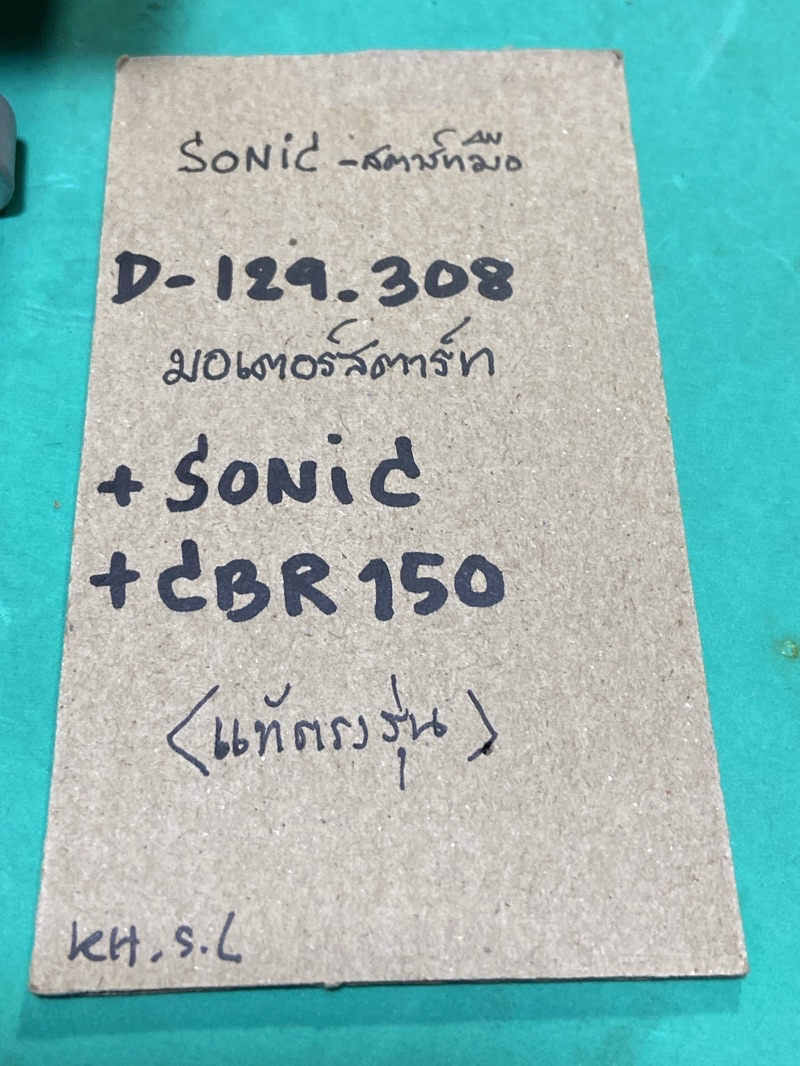 SONiC - สตาร์ทมือ
D-129.308
มอเตอร์สตาร์ท
+ SONiC
+ CBR 150
(แท้ตรงรุ่น)
KH.S.L